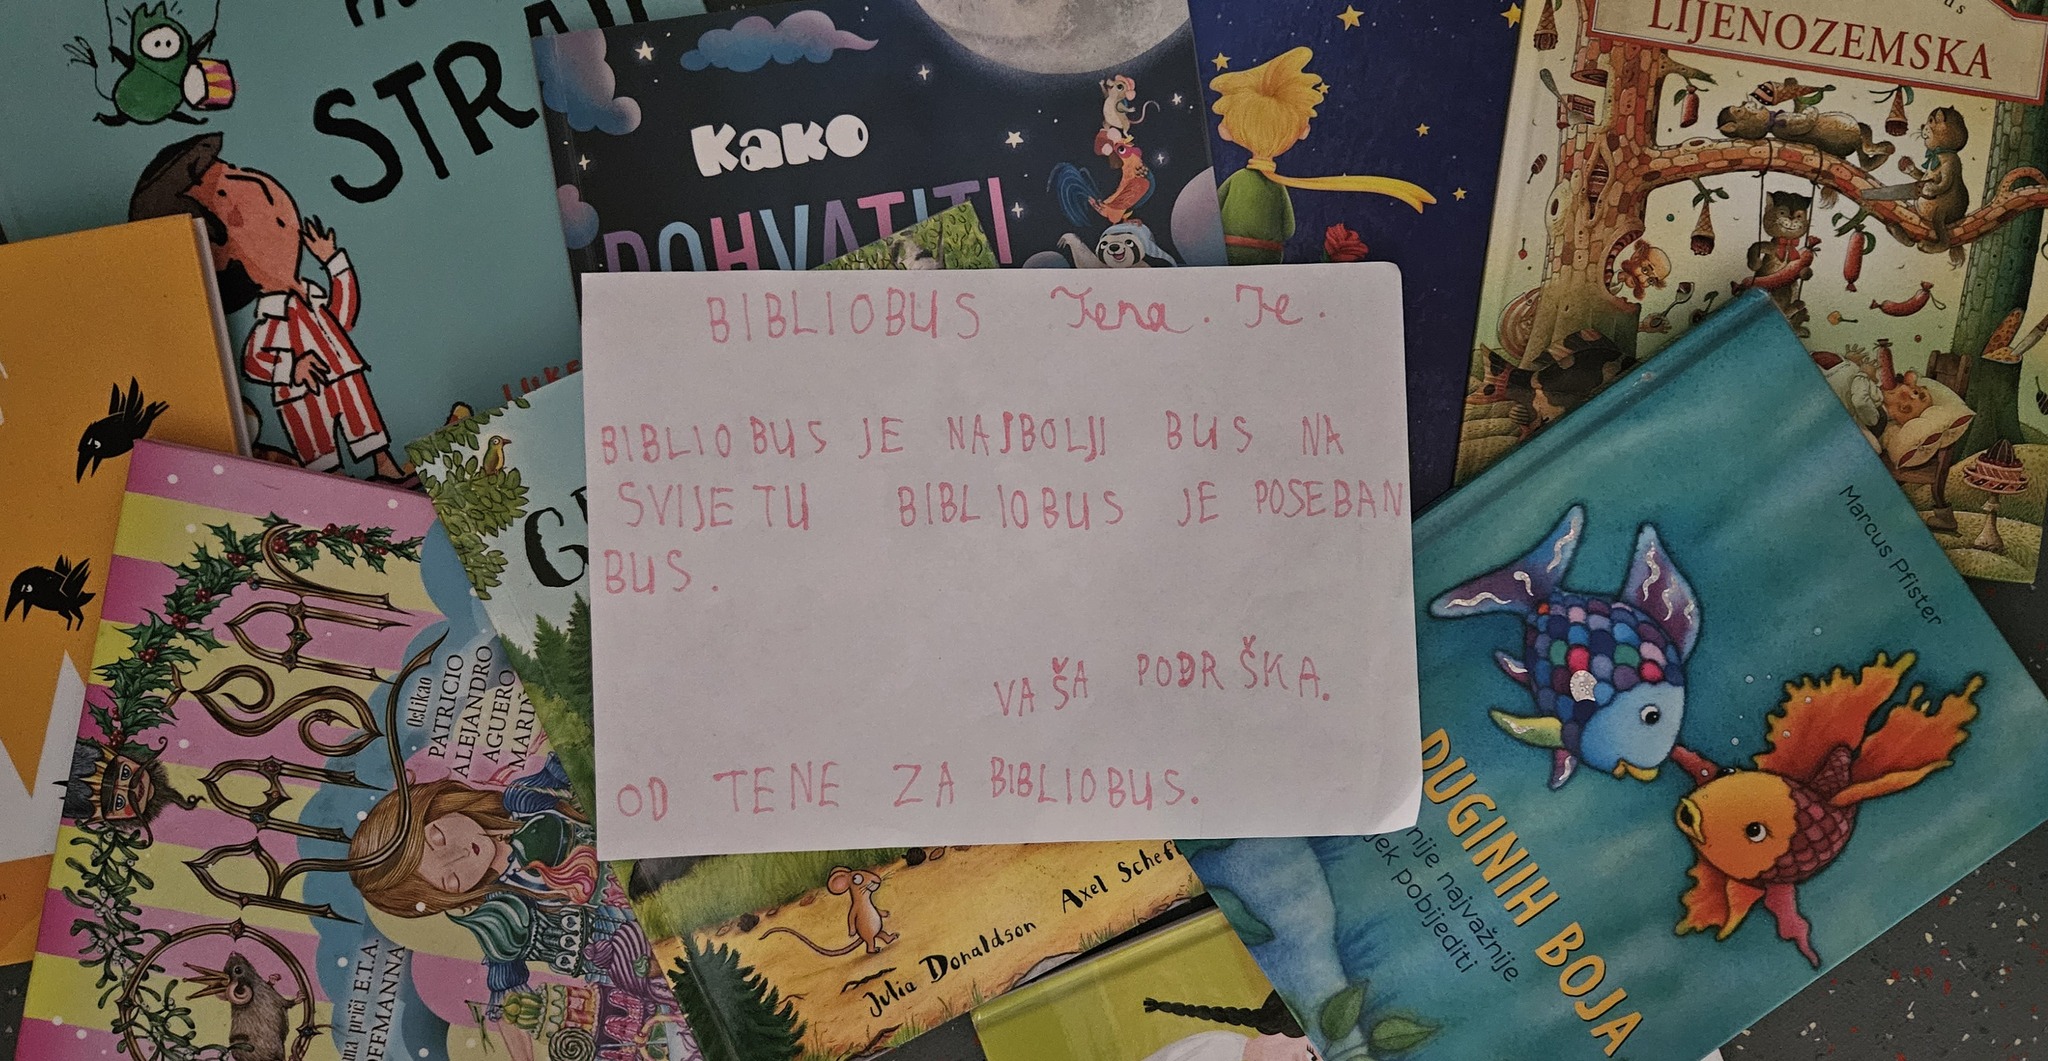 STR
KAKO
DOHVATITI
LIJENOZEMSKA
BIBLIOBUS Tena. Te.
BIBLIOBUS JE NAJBOLJI BUS NA
SVIJETU BIBLIOBUS JE POSEBAN
BUS.
VAŠA PODRŠKA.
OD TENE ZA BIBLIOBUS.
Oslikao
PATRICIO
ALEJANDRO
AGUERO
Julia Donaldson
Axel
Marcus Pfister
DUGINIH BOJA
nije najvažnije
pobijediti